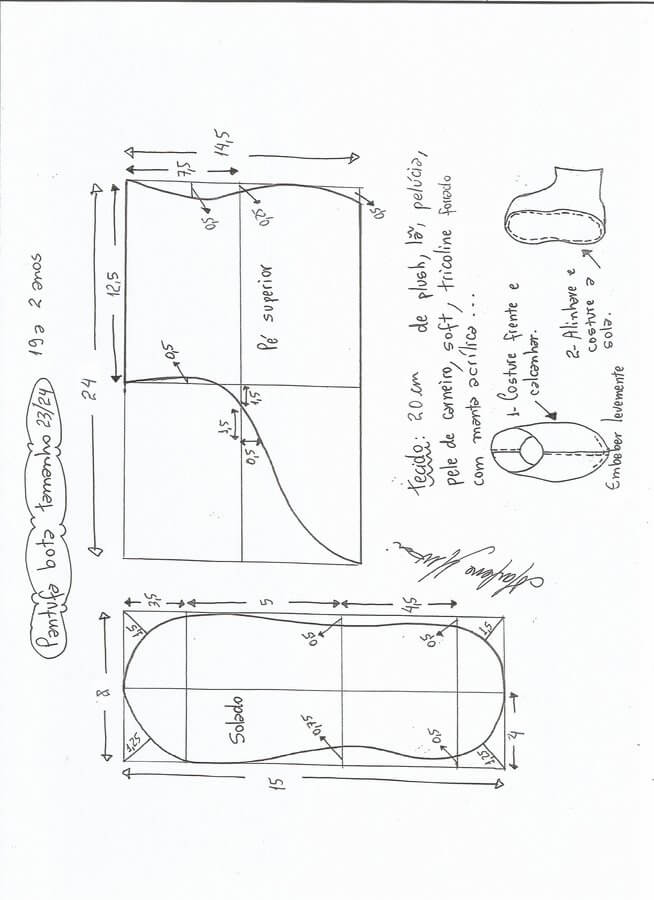 Pantufa bota tamanho 23/24 19 a 2 anos
24
12,5
14,5
7,5
0,5
0,75
0,5
0,5
Pé superior
1,5
3,5
0,5
tecido: 20 cm de plush, lã, pelúcia,
pele de carneiro, soft, tricoline forrado
com manta acrílica...
1- Costure frente e
calcanhar.
Embeber levemente
2- Alinhave e
costure a
sola.
8
3,5
5
4,5
1,5
0,5
0,5
1,5
Solado
0,75
0,5
1,25
4
15